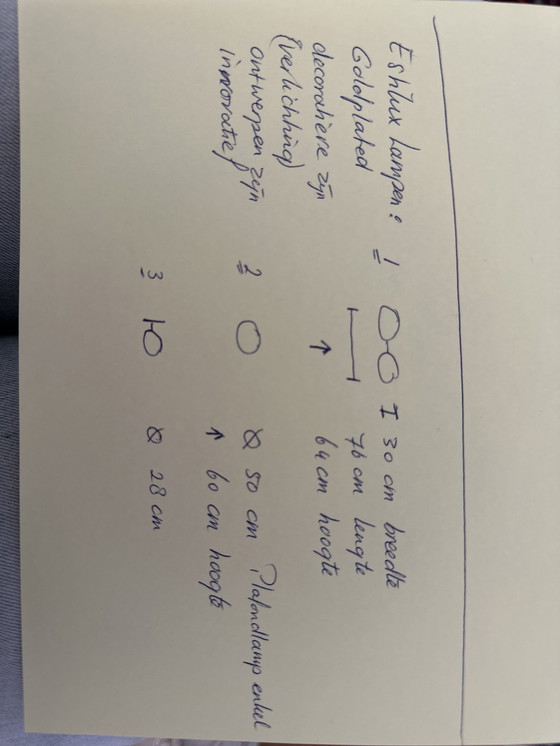 Eshlux Lampen: 1 30 cm breedte
Goldplated 76 cm lengte
decoratieve zijn ↑ 64 cm hoogte
(verlichting)
ontwerpen zijn 2 Ø 50 cm Plafondlamp enkel
innovatief ↑ 60 cm hoogte
3 Ø 28 cm